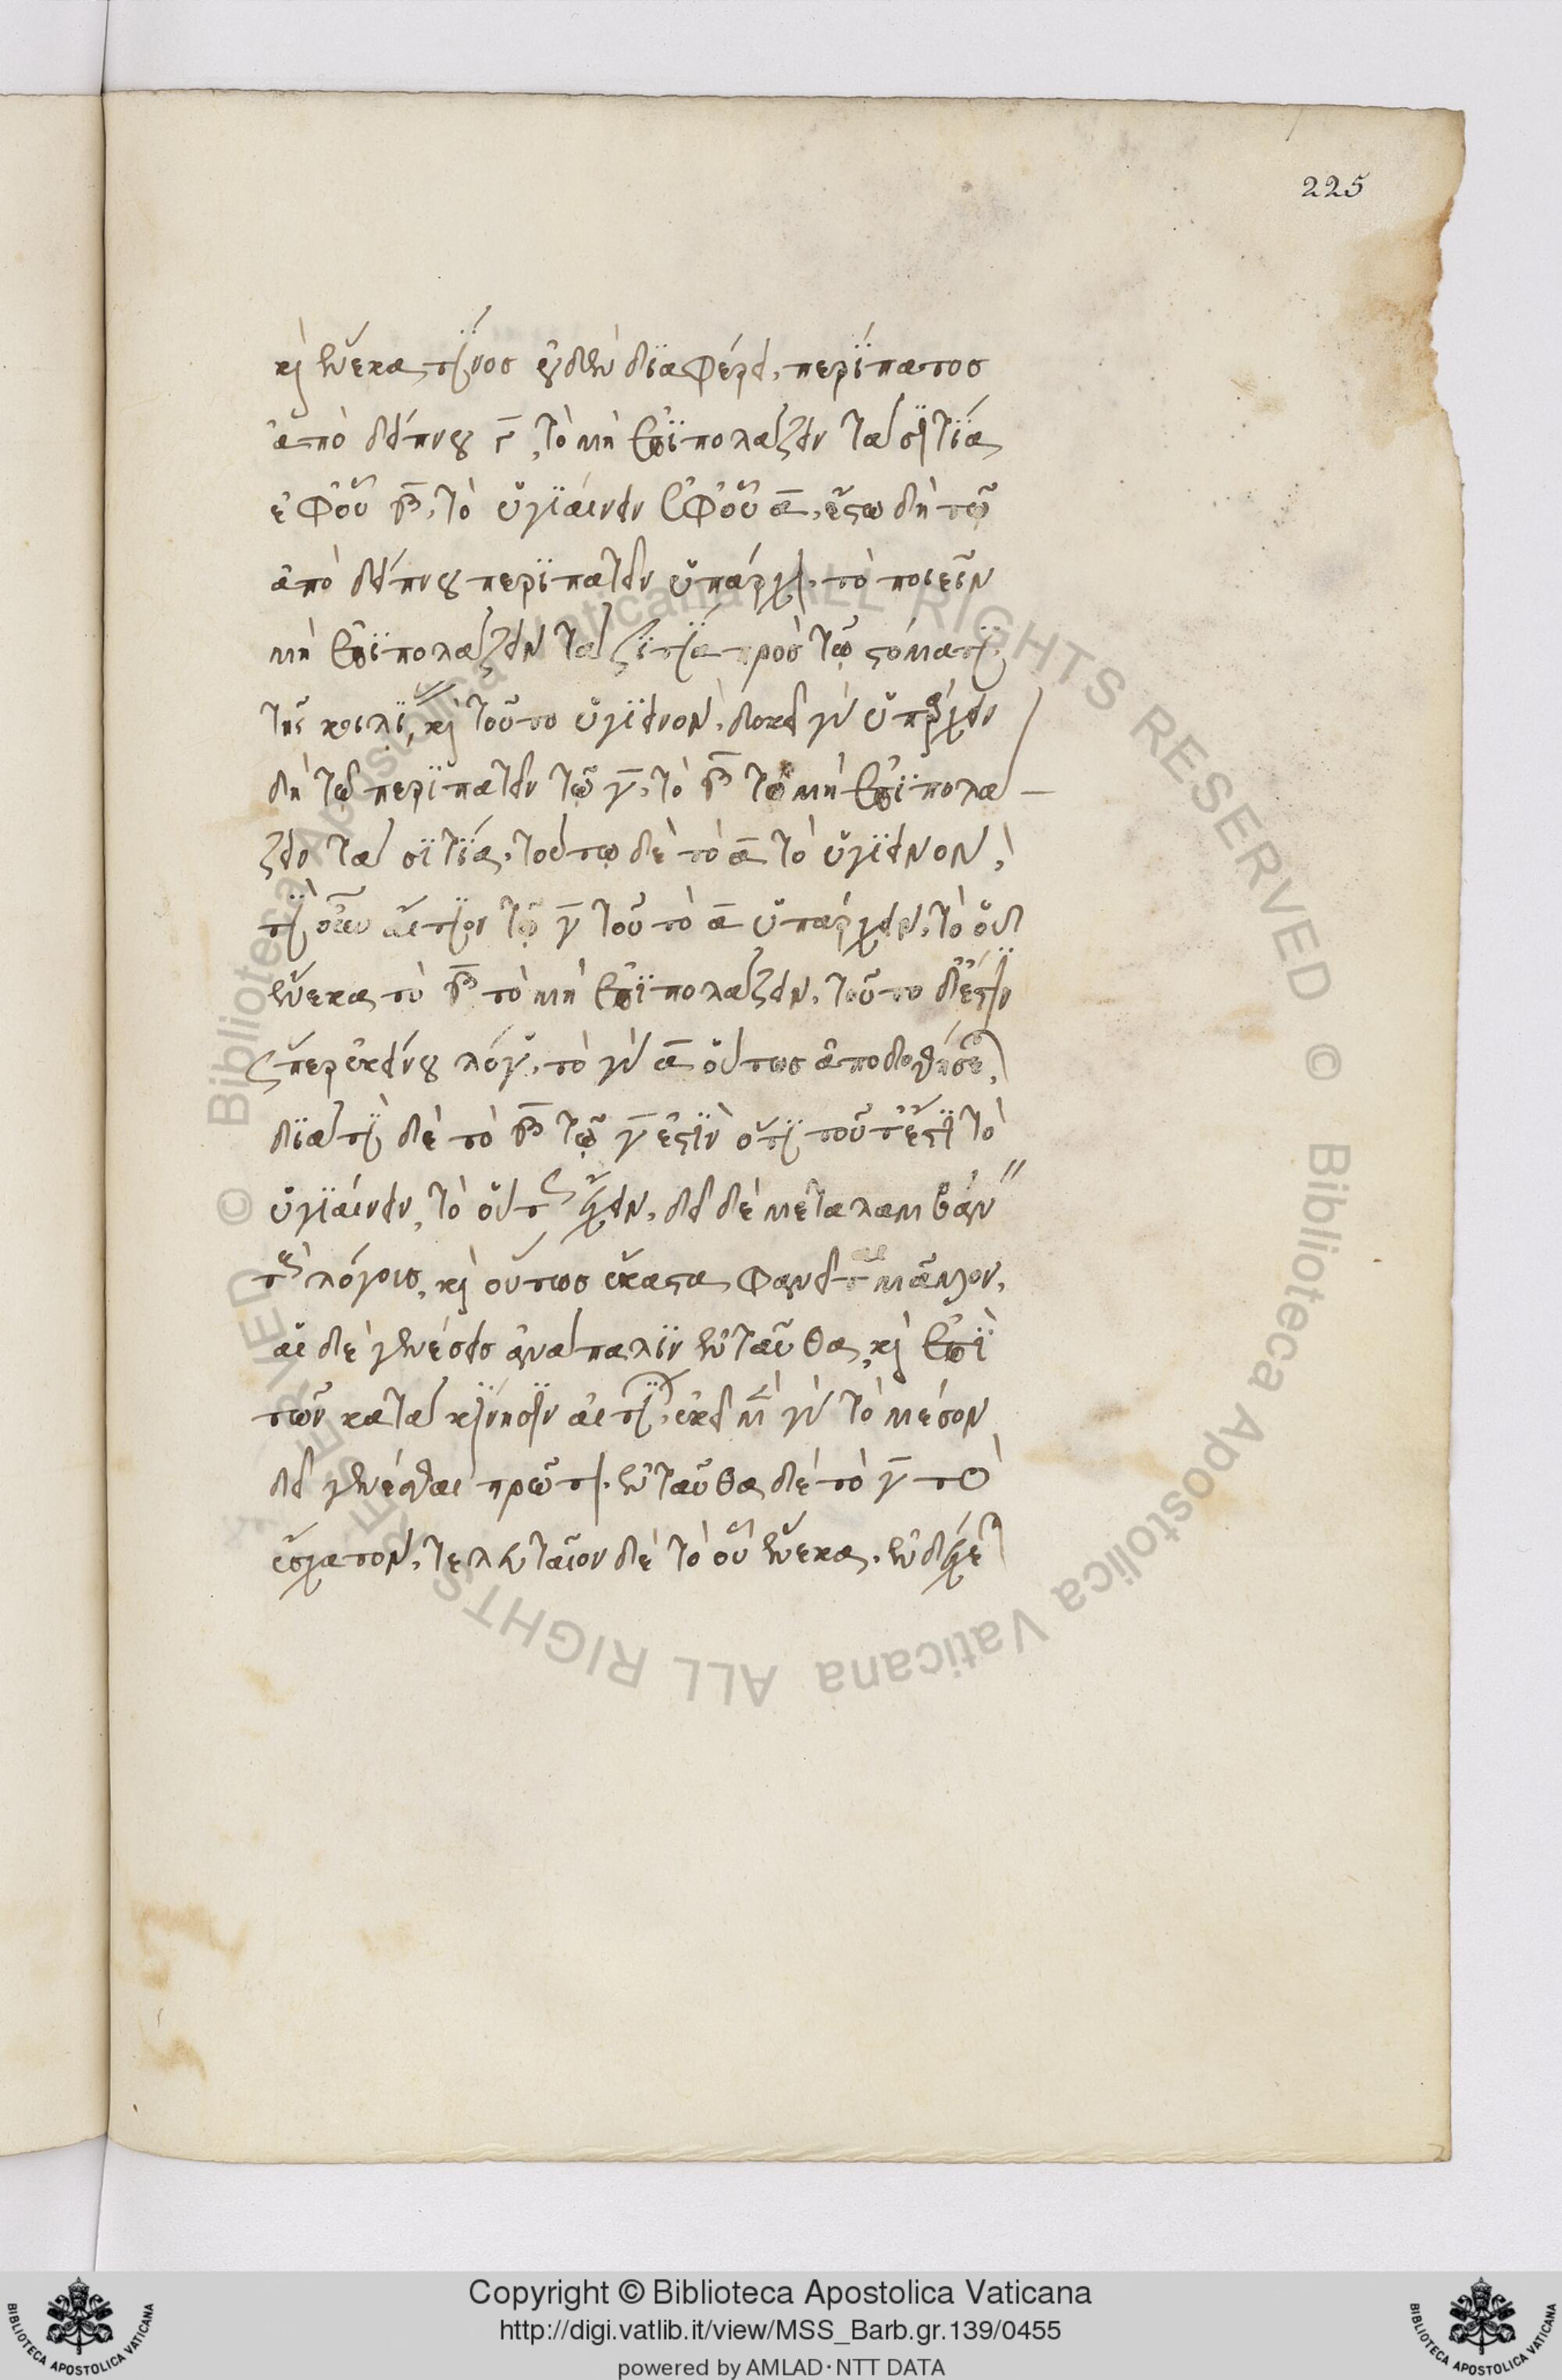 225
καὶ ἕνεκα τίνος οὐδὲν διαφέρει. περίπατος
ἀπὸ δείπνου γ, τὸ μὴ ἐπιπολάζειν τὰ σιτία
ἐφ' οὗ β. τὸ ὑγιαίνειν ἐφ' οὗ α. ἔστω δὴ τῷ
ἀπὸ δείπνου περιπατεῖν ὑπάρχει. τὸ ποιεῖν
μὴ ἐπιπολάζειν τὰ σιτία πρὸς τῷ στόματι
τῆς κοιλίας, καὶ τοῦτο ὑγιεινόν. δοκεῖ γὰρ ὑπάρχειν
δὴ τῷ περιπατεῖν τῷ γ. τὸ β τὸ μὴ ἐπιπολά-
ζειν τὰ σιτία. τούτῳ δὲ τὸ α τὸ ὑγιεινόν,
τί οὖν αἴτιον τῷ γ τοῦ τὸ α ὑπάρχειν. τὸ οὗ
ἕνεκα τὸ β τὸ μὴ ἐπιπολάζειν. τοῦτο δ' ἐστὶν
ὥσπερ ἐκείνου λόγος. τὸ γὰρ α οὕτως ἀποδοθήσεται,
διὰ τί δὲ τὸ β τῷ γ ἐστὶν ὅτι τοῦτ' ἔστι τὸ
ὑγιαίνειν, τὸ οὕτως ἔχειν. δεῖ δὲ μεταλαμβάνειν
τοὺς λόγους, καὶ οὕτως ἕκαστα φανεῖται μᾶλλον.
αἱ δὲ γενέσεις ἀνάπαλιν ἐνταῦθα, καὶ ἐπὶ
τῶν κατὰ κίνησιν αἰτίων. ἐκεῖ μὲν γὰρ τὸ μέσον
δεῖ γενέσθαι πρῶτον. ἐνταῦθα δὲ τὸ γ τὸ
ἔσχατον. τελευταῖον δὲ τὸ οὗ ἕνεκα. ἐνδέχεται
Copyright © Biblioteca Apostolica Vaticana
http://digi.vatlib.it/view/MSS_Barb.gr.139/0455
powered by AMLAD·NTT DATA
BIBLIOTECA APOSTOLICA VATICANA
BIBLIOTECA APOSTOLICA VATICANA
© Biblioteca Apostolica Vaticana ALL RIGHTS RESERVED © Biblioteca Apostolica Vaticana ALL RIGHTS RESERVED